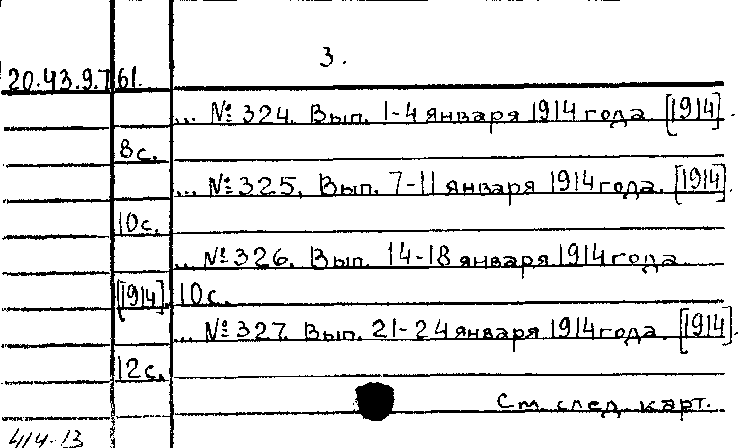 3.
20.43.9.7 61.
... № 324. Вып. 1-4 января 1914 года. [1914].
8с.
... № 325. Вып. 7-11 января 1914 года. [1914].
10с.
... № 326. Вып. 14-18 января 1914 года
[1914]. 10с.
... № 327. Вып. 21-24 января 1914 года. [1914].
12с.
См. след. карт.
414-13